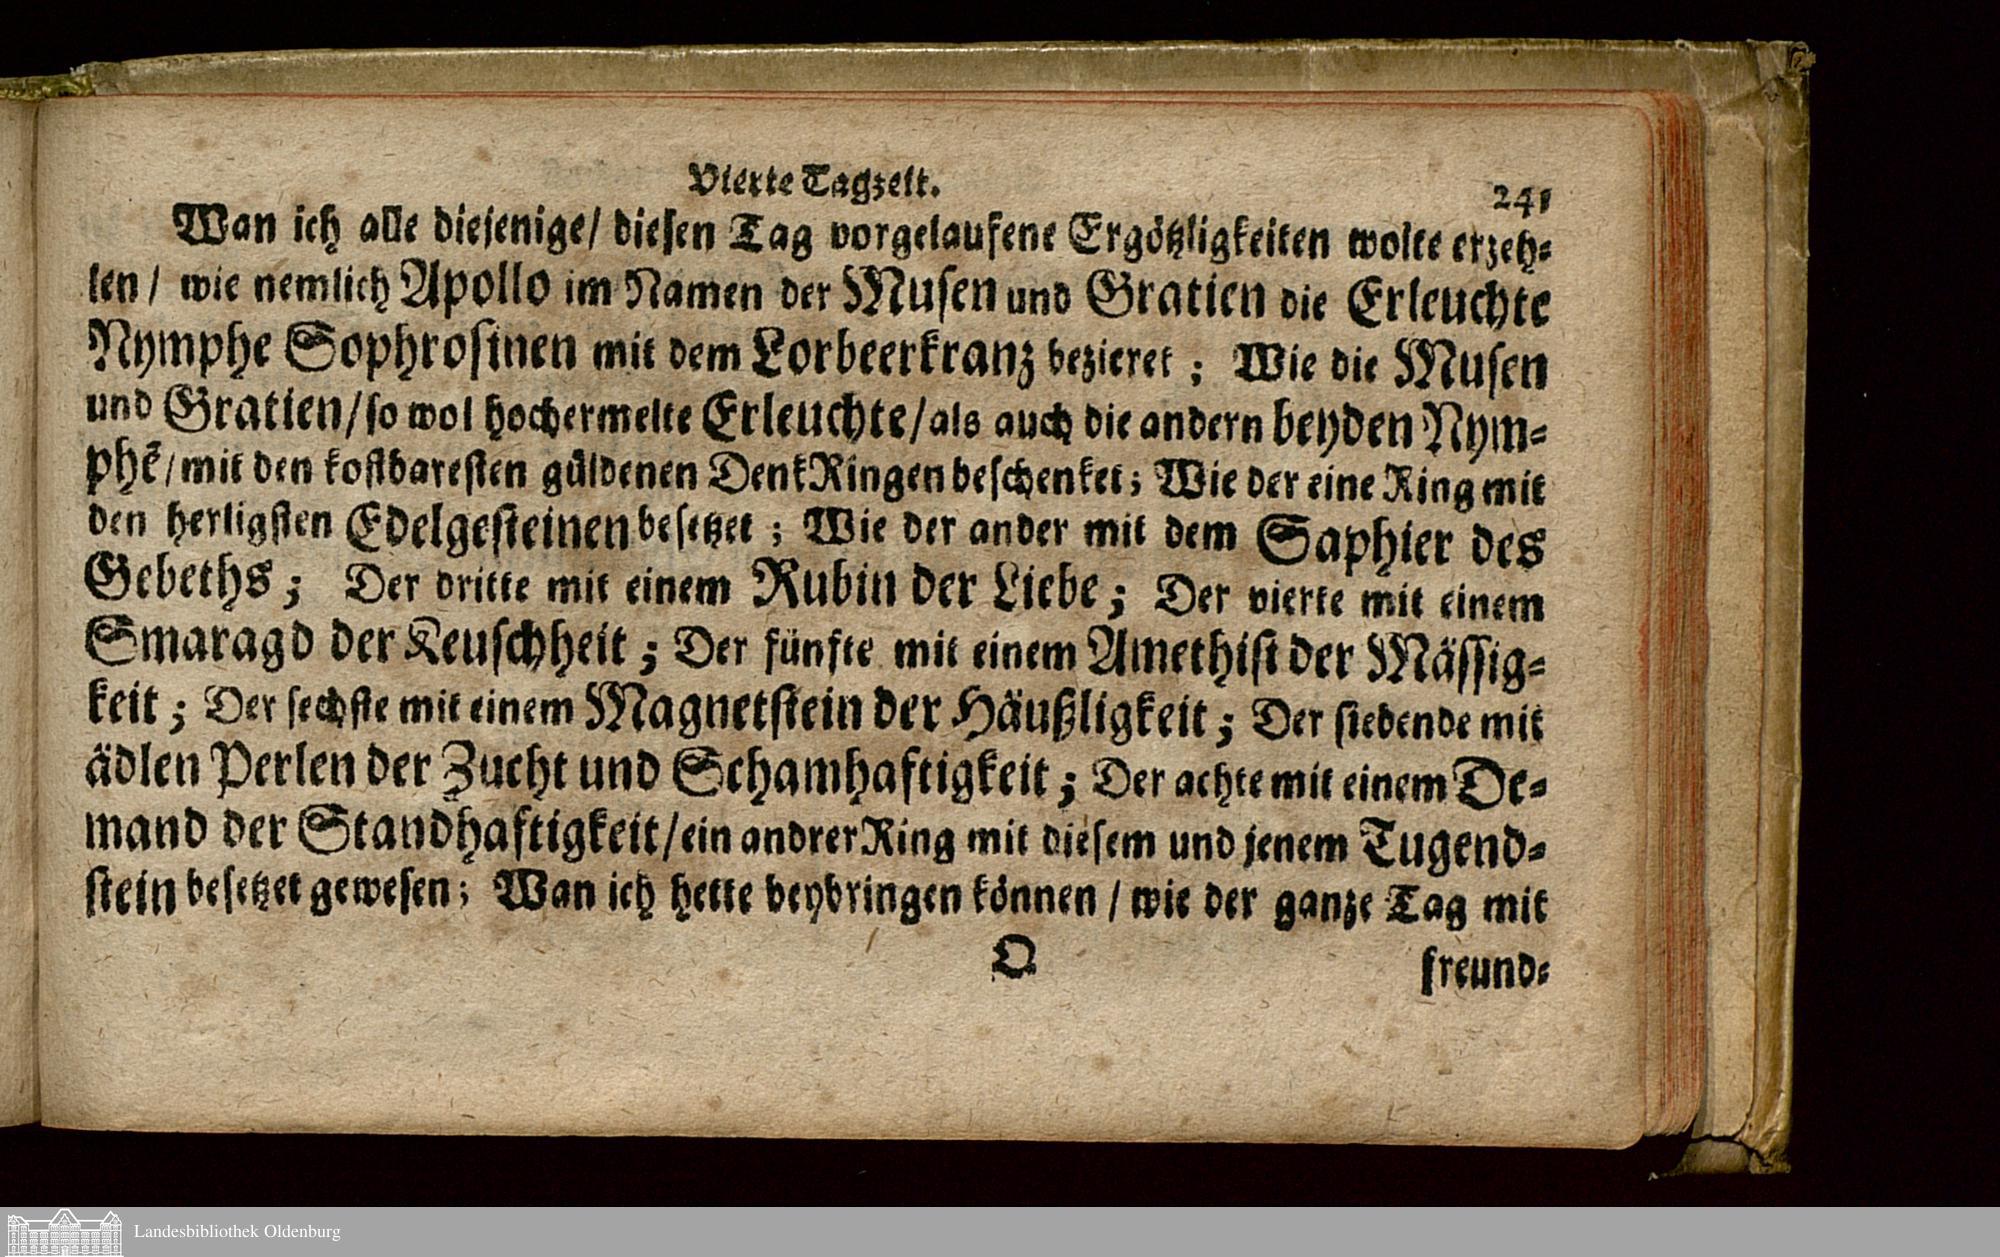 Vierte Tagzeit.
241
Wan ich alle diejenige/ diesen Tag vorgelaufene Ergötzligkeiten wolte erzeh-
len / wie nemlich Apollo im Namen der Musen und Gratien die Erleuchte
Nymphe Sophrosinen mit dem Lorbeerkranz bezieret ; Wie die Musen
und Gratien/ so wol hochermelte Erleuchte/ als auch die andern beyden Nym-
phē/ mit den kostbaresten güldenen DenkRingen beschenket; Wie der eine Ring mit
den herligsten Edelgesteinen besetzet ; Wie der ander mit dem Saphier des
Gebeths ; Der dritte mit einem Rubin der Liebe ; Der vierte mit einem
Smaragd der Keuschheit ; Der fünfte mit einem Amethist der Mässig-
keit ; Der sechste mit einem Magnetstein der Häußligkeit ; Der siebende mit
ädlen Perlen der Zucht und Schamhaftigkeit ; Der achte mit einem De-
mand der Standhaftigkeit/ ein andrer Ring mit diesem und jenem Tugend-
stein besetzet gewesen ; Wan ich hette beybringen können / wie der ganze Tag mit
Q
freund-
Landesbibliothek Oldenburg